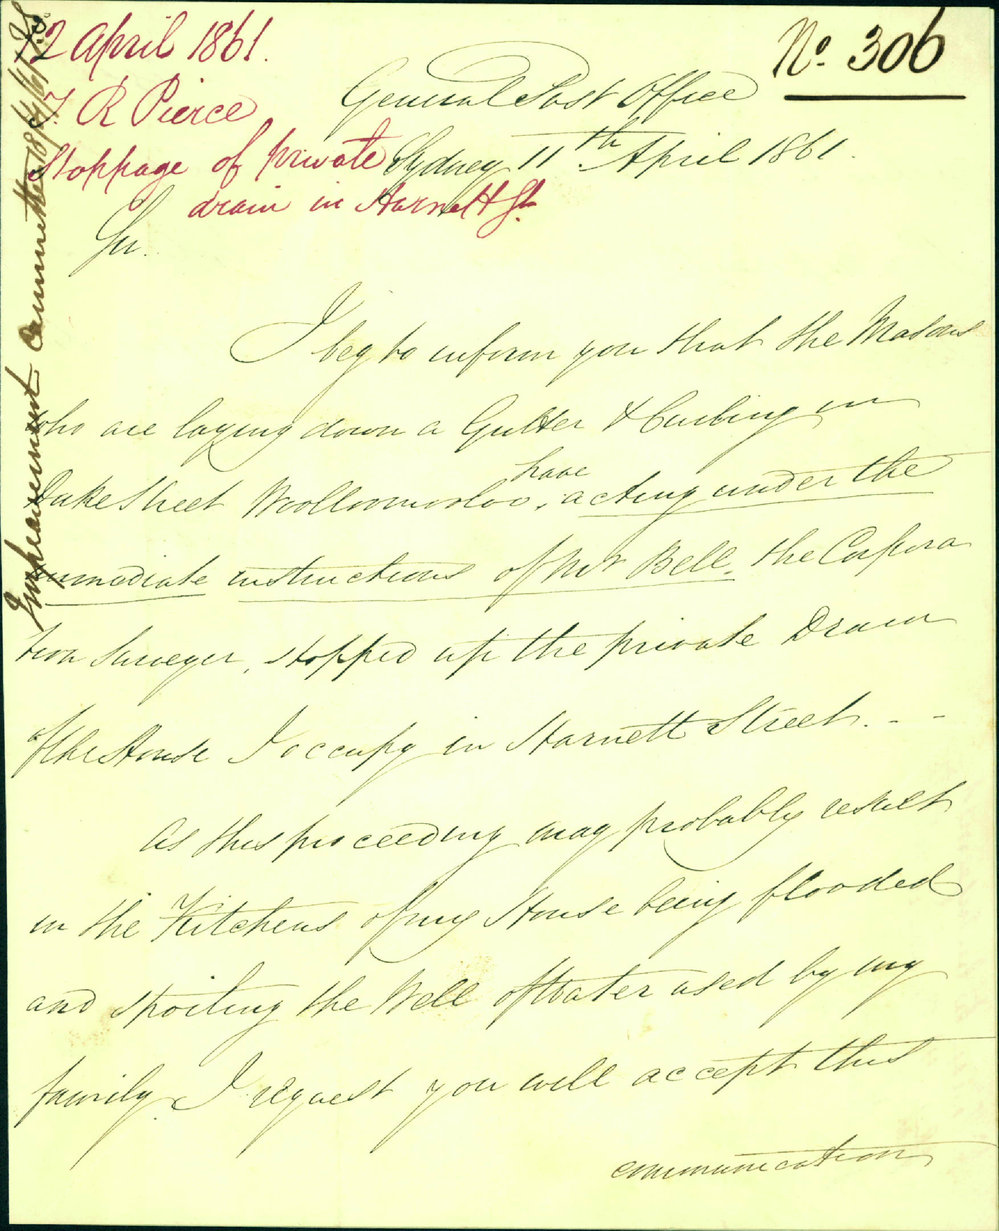 No. 306
12 April 1861.
T. R Pierce
Stoppage of private
drain in Harnett St
Improvement Committee 18/4/61
General Post Office
Sydney 11th April 1861.
Sir.
I beg to inform you that the Masons
who are laying down a Gutter & Curbing in
Duke Street Woolloomooloo, have acting under the
immediate instructions of Mr Bell, the Corpora
tion Surveyor, stopped up the private Drain
of the House I occupy in Harnett Street. - -
As this proceeding may probably result
in the Kitchens of my House being flooded
and spoiling the Well of Water used by my
family I request you will accept this
communication